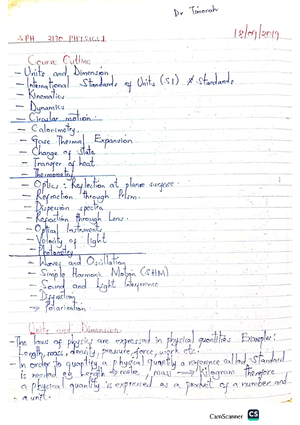 Dr Timonah
SPH 2170 PHYSICS I 18/09/2019
Course Outline
- Units and Dimension
- International Standards of Units (SI) & Standards
- Kinematics
- Dynamics
- Circular motion
- Calorimetry
- Gases Thermal Expansion
- Change of state
- Transfer of heat
- Thermometry
- Optics : Reflection at plane surface
- Refraction through Prism.
- Dispersion spectra
- Refraction through Lens.
- Optical Instruments
- Velocity of light
- Photometry
- Waves and Oscillation
- Simple Harmonic Motion (SHM)
- Sound and Light Interference
- Diffraction
- Polarisation
Units and Dimension
- The laws of physics are expressed in physical quantities Examples:
Length, mass, density, pressure, force, work etc.
- In order to quantify a physical quantity a reference called standard
is needed eg Length → metre, mass → kilogram therefore
a physical quantity is expressed as a product of a number and
a unit.
CamScanner CS